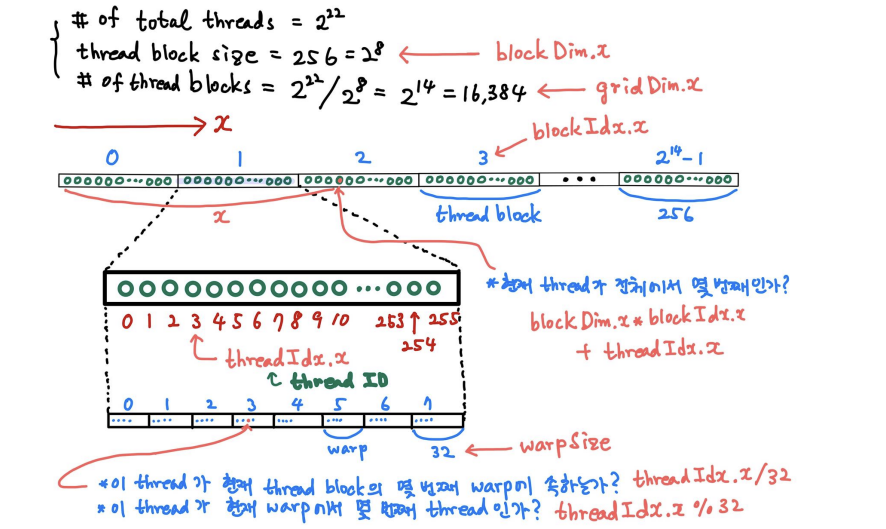 # of total threads = 2²²
thread block size = 256 = 2⁸ ← blockDim.x
# of thread blocks = 2²²/2⁸ = 2¹⁴ = 16,384 ← gridDim.x
→ x
blockIdx.x
0 1 2 3 2¹⁴-1
...
x thread block 256
*현재 thread가 전체에서 몇 번째인가?
blockDim.x * blockIdx.x
+ threadIdx.x
...
0 1 2 3 4 5 6 7 8 9 10 253 ↑ 255
254
threadIdx.x
thread ID
0 1 2 3 4 5 6 7
warp 32 ← warpSize
*이 thread가 현재 thread block의 몇 번째 warp에 속하는가? threadIdx.x/32
*이 thread가 현재 warp에서 몇 번째 thread인가? threadIdx.x % 32